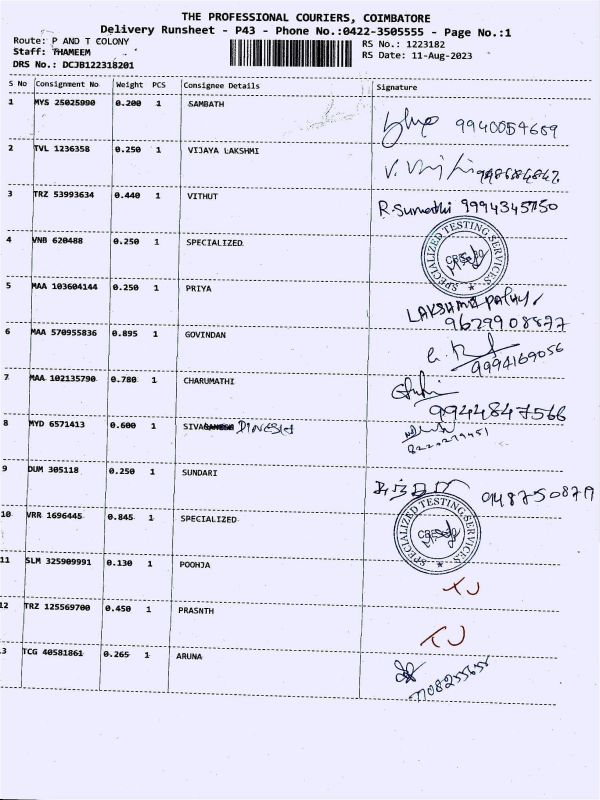 THE PROFESSIONAL COURIERS, COIMBATORE
Delivery Runsheet - P43 - Phone No.:0422-3505555 - Page No.:1
Route: P AND T COLONY
RS No.: 1223182
Staff: THAMEEM
RS Date: 11-Aug-2023
DRS No.: DCJB122318201
S No Consignment No Weight PCS Consignee Details Signature
1 MYS 25025990 0.200 1 SAMBATH
9940054669
2 TVL 1236358 0.250 1 VIJAYA LAKSHMI
3 TRZ 53993634 0.440 1 VITHUT
R. Sumathi 9994345750
4 VNB 620488 0.250 1 SPECIALIZED
SPECIALIZED TESTING SERVICES
5 MAA 103604144 0.250 1 PRIYA
9629908877
6 MAA 570955836 0.895 1 GOVINDAN
9994169056
7 MAA 102135790 0.780 1 CHARUMATHI
9944847566
8 MYD 6571413 0.600 1 SIVA DINESH
9 DUM 305118 0.250 1 SUNDARI
10 VRR 1696445 0.845 1 SPECIALIZED
SPECIALIZED TESTING SERVICES
11 SLM 325909991 0.130 1 POOHJA
12 TRZ 125569700 0.450 1 PRASNTH
3 TCG 40581861 0.265 1 ARUNA